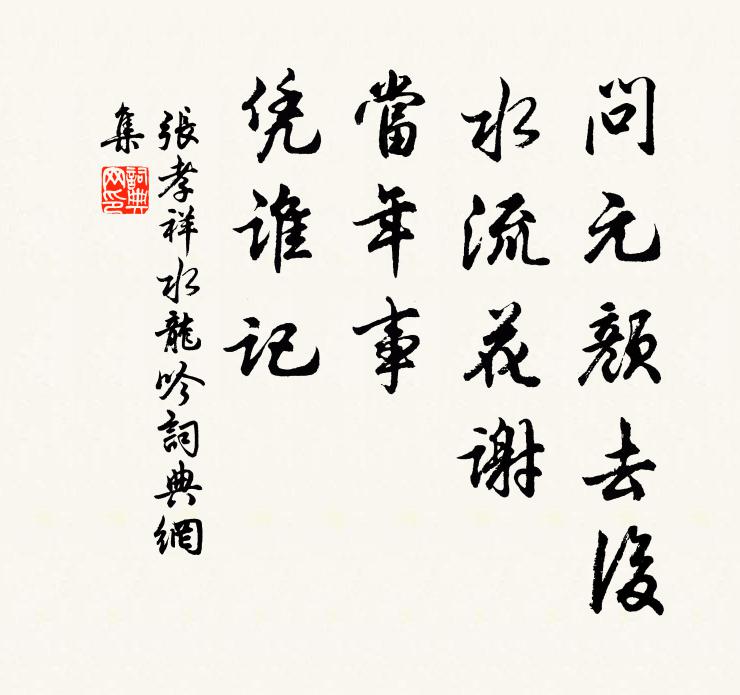 問元顏去後
水流花謝
當年事
凭誰記
張孝祥水龍吟詞典網
集
詞典
网印